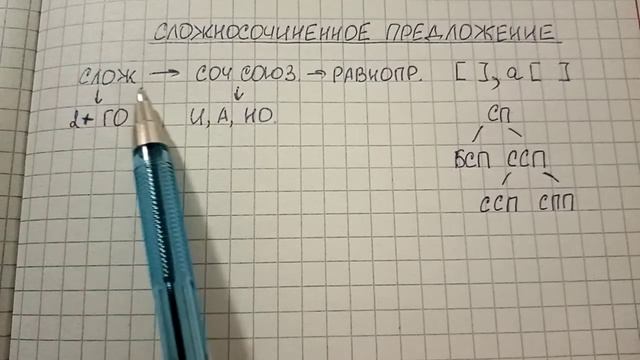 СЛОЖНОСОЧИНЕННОЕ ПРЕДЛОЖЕНИЕ
СЛОЖ → СОЧ СОЮЗ → РАВНОПР. [ ], а [ ]
↓ ↓
2+ ГО И, А, НО.
СП
БСП ССП
ССП СПП